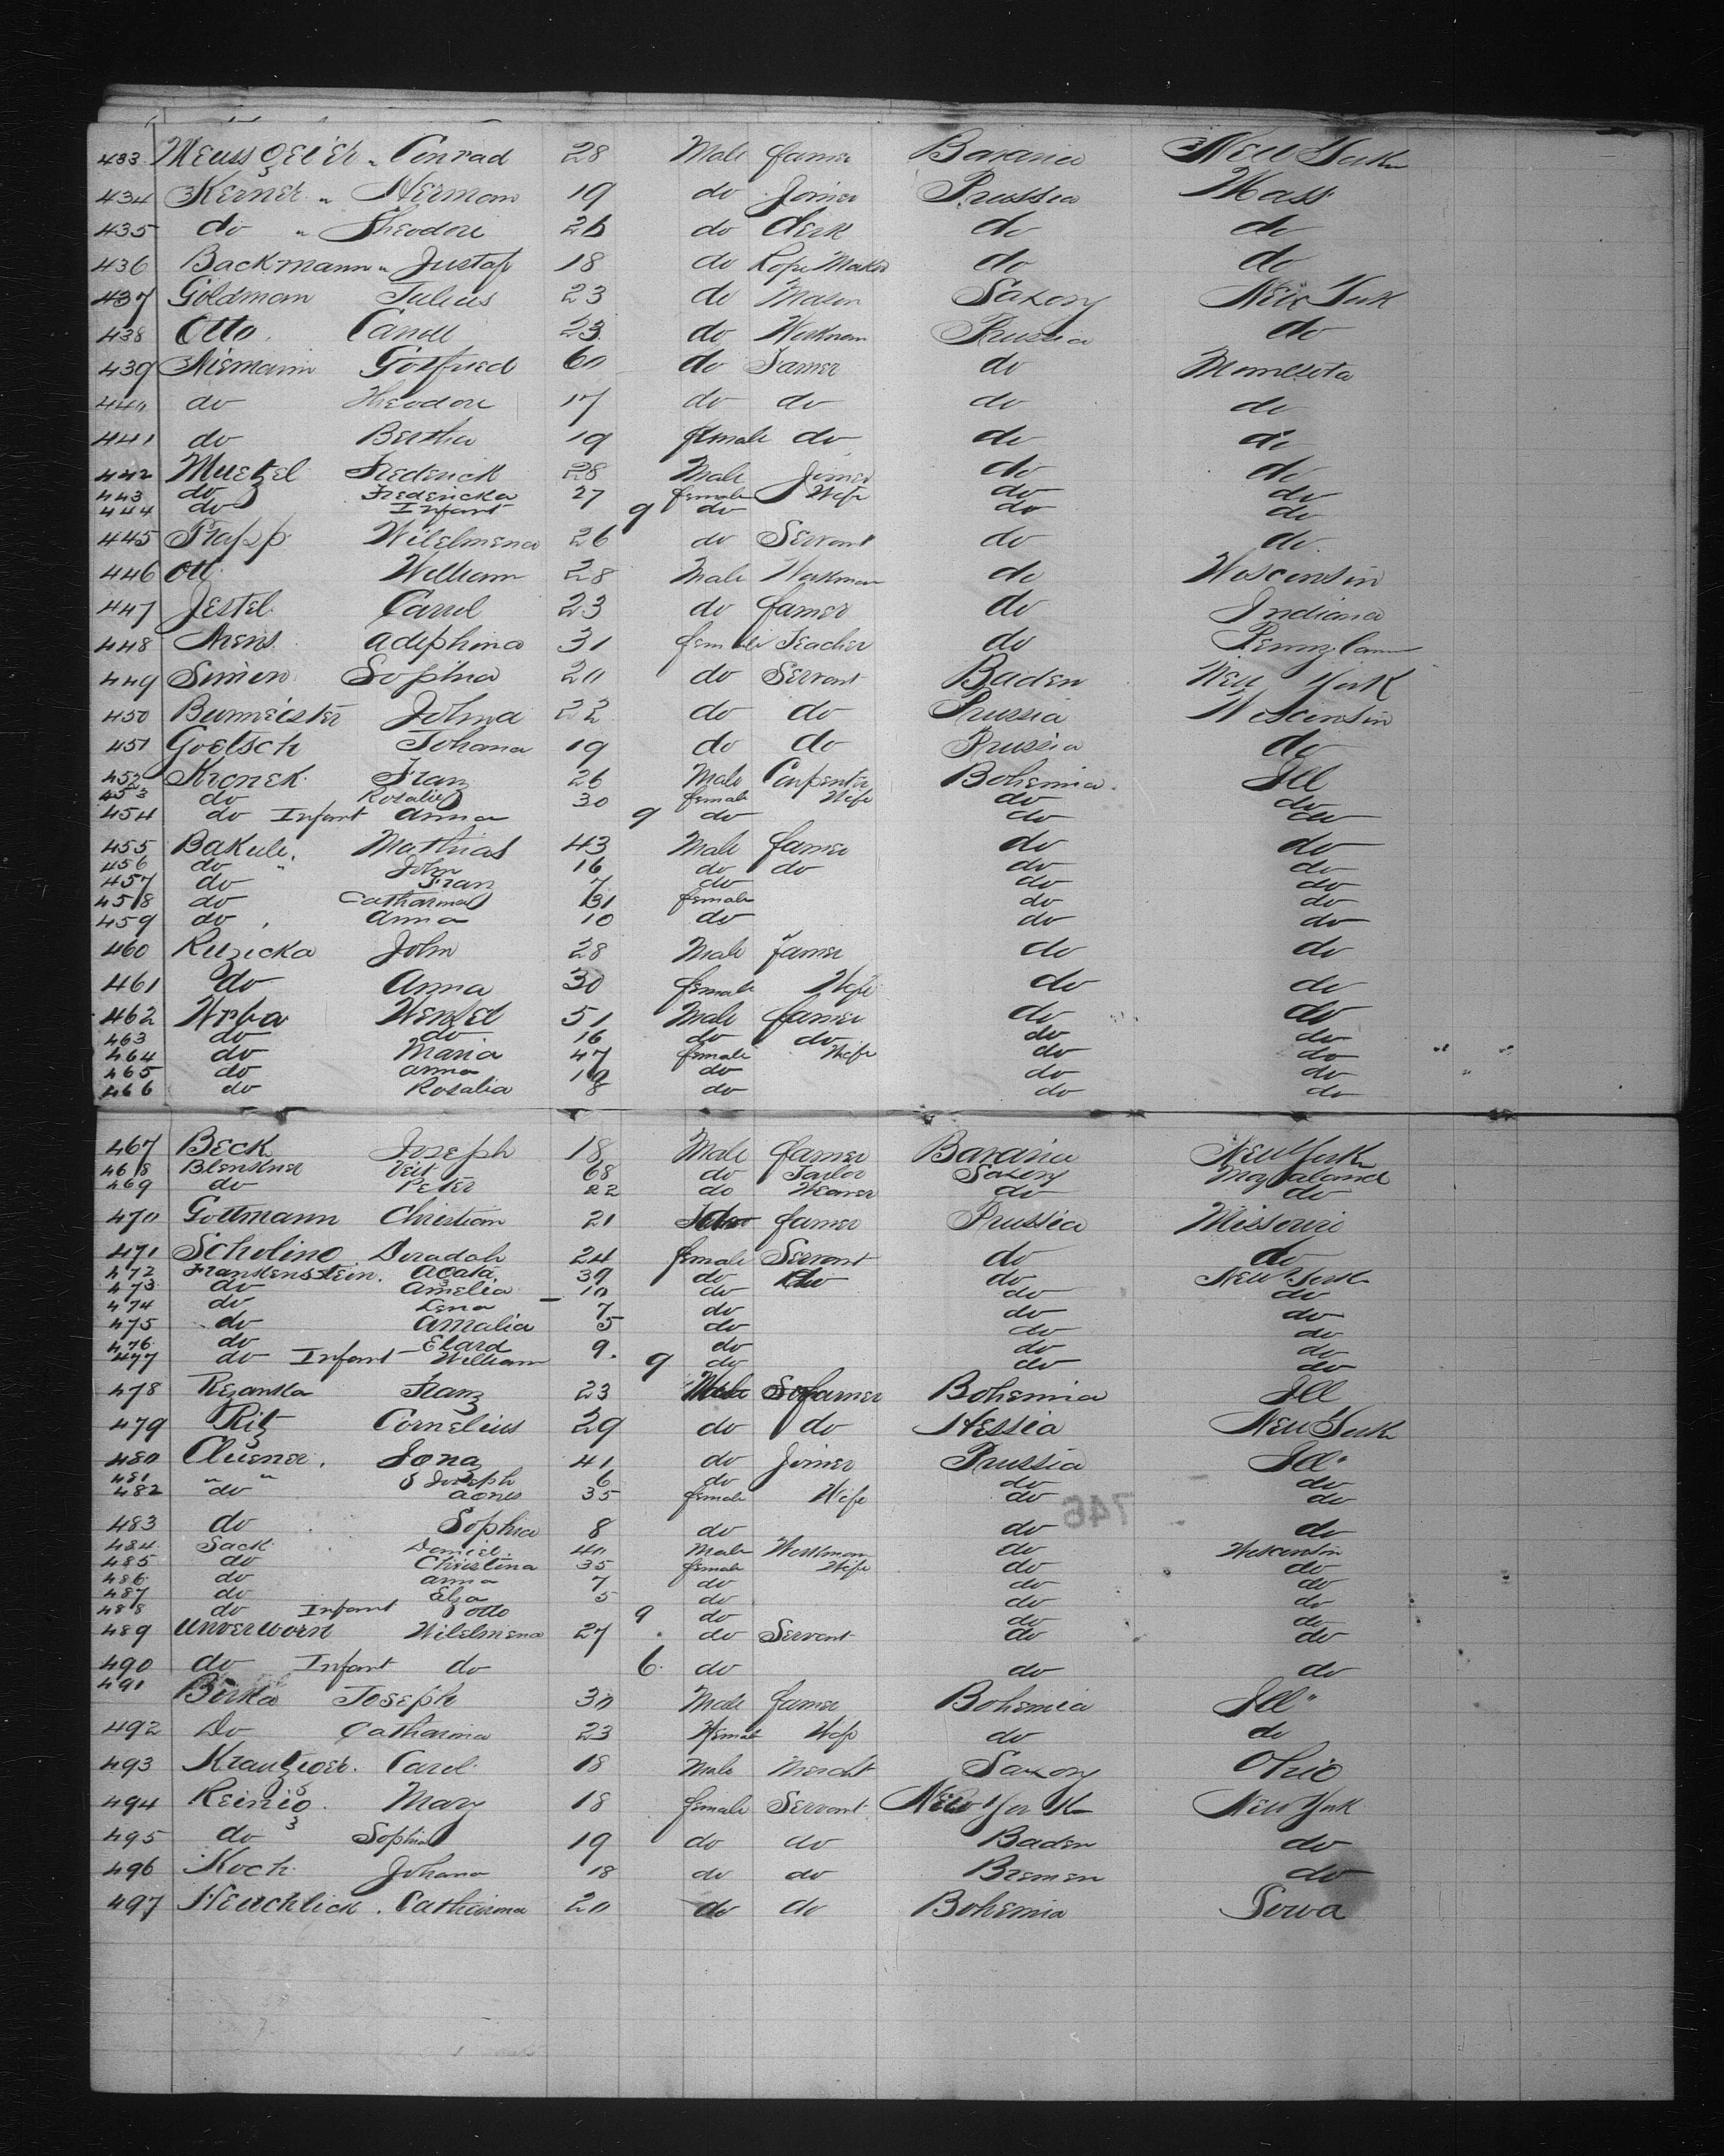 433 Meussgeier " Conrad 28 Male farmer Bavaria New York
434 Kerner " Herman 19 do Joiner Prussia Mass
435 do " Theodore 26 do Clerk do do
436 Backmann " Gustaf 18 do Rope Maker do do
437 Goldman Julius 23 do Mason Saxony New York
438 Otto Caroll 23 do Workman Prussia do
439 Niemann Gottfried 60 do Farmer do Minnesota
440 do Theodore 17 do do do do
441 do Bertha 19 female do do do
442 Muetzel Frederick 28 Male Joiner do do
443 do Fredericka 27 female Wife do do
444 do Infant 9 do do do
445 Rapp Wilelmena 26 do Servant do do
446 Ott William 28 Male Workman do Wisconsin
447 Jestel Carrel 23 do farmer do Indiana
448 Arens Adephina 31 female Teacher do
449 Simon Sophia 20 do Servant Baden New York
450 Burmeister 22 do do Prussia Wisconsin
451 Goelsch Johana 19 do do Prussia do
452 Kronek Franz 26 Male Carpenter Bohemia Ill
453 do Rosalie 30 female Wife do do
454 do Infant Anna 9 do do do
455 Bakule Mathias 43 Male farmer do do
456 do " John 16 do do do do
457 do Franz 7 do do do
458 do Catharina 31 female do do
459 do Anna 10 do do do
460 Ruzicka John 28 Male farmer do do
461 do Anna 30 female Wife do do
462 Wrba Wenzel 51 Male farmer do do
463 do do 16 do do do do
464 do Maria 47 female Wife do do
465 do Anna do do do
466 do Rosalia 8 do do do
467 Beck Joseph 18 Male farmer Bavaria New York
468 Blenkner Veit 68 do Taylor Saxony Maryaland
469 do Peter 22 do Weaver do do
470 Gottmann Christian 21 do farmer Prussia Missouri
471 Scholing Doradah 24 female Servant do do
472 Frankenstein Agata 39 do do do New York
473 do Amelia 10 do do do
474 do Lena 7 do do do
475 do Amalia 5 do do do
476 do Elard 9 do do do
477 do Infant William 9 do do do
478 Rezanka Franz 23 Male farmer Bohemia Ill
479 Ritz Cornelius 29 do do Hessia New York
480 Cluener Ignaz 41 do Joiner Prussia Ill"
481 " " Joseph 6 do do do
482 do Agnes 35 female Wife do do
483 do Sophia 8 do do do
484 Sack Daniel 40 Male Workman do Wisconsin
485 do Christina 35 female Wife do do
486 do Anna 7 do do do
487 do Elza 5 do do do
488 do Infant Otto 9 do do do
489 Unverworn Wilelmena 27 do Servant do do
490 do Infant do 6 do do do
491 Birka Joseph 30 Male farmer Bohemia Ill"
492 Do Catharina 23 Femal Wife do do
493 Carel 18 Male Mercht Saxony Ohio
494 Reinig Mary 18 female Servant New York New York
495 do Sophia 19 do do Baden do
496 Koch Johana 18 do do Bremen do
497 Heuchlick Catharina 20 do do Bohemia Iowa
746